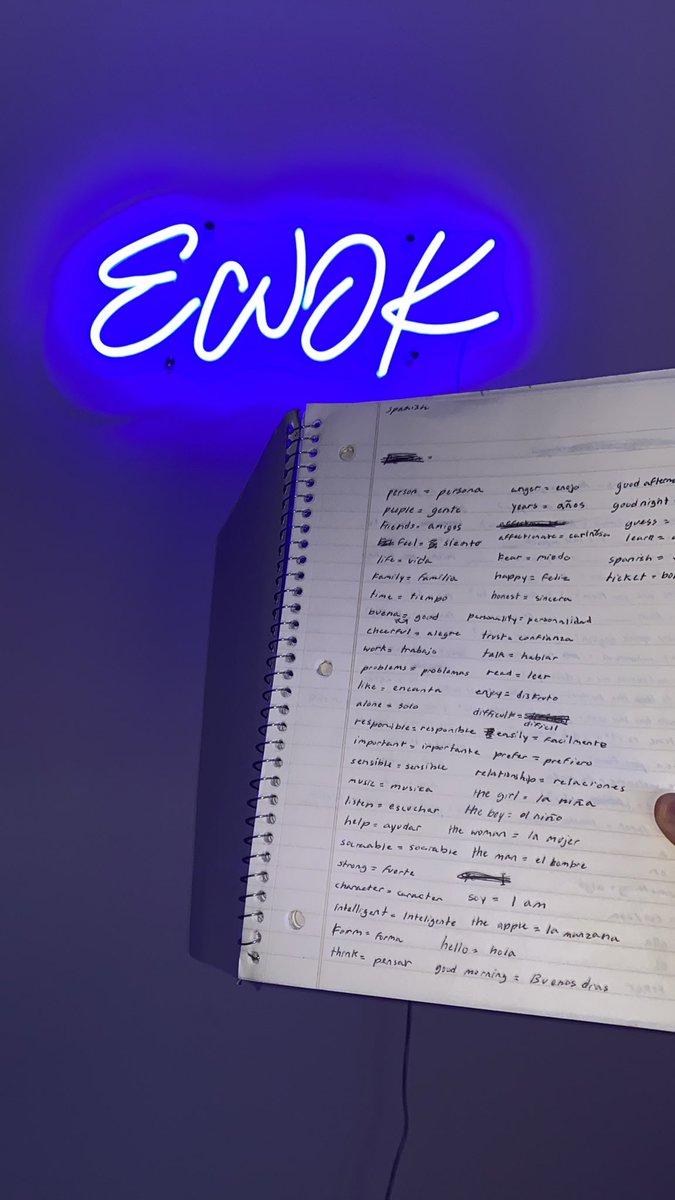 EWOK
Spanish
person = persona anger = enojo good
people = gente years = años good night
friends = amigos guess =
feel = siento affectionate = learn =
life = vida fear = miedo spanish =
family = familia happy = feliz ticket =
time = tiempo honest = sincera
buena = good personality = personalidad
cheerful = alegre trust = confianza
work = trabajo talk = hablar
problems = problemas read = leer
like = encanta enjoy = disfruto
alone = solo difficult = dificil
responsible = responsible easily = facilmente
important = importante prefer = prefiero
sensible = sensible relationship = relaciones
music = musica the girl = la niña
listen = escuchar the boy = el niño
help = ayudar the woman = la mujer
sociable = sociable the man = el hombre
strong = fuerte
character = caracter soy = I am
intelligent = inteligente the apple = la manzana
form = forma hello = hola
think = pensar good morning = Buenos dias